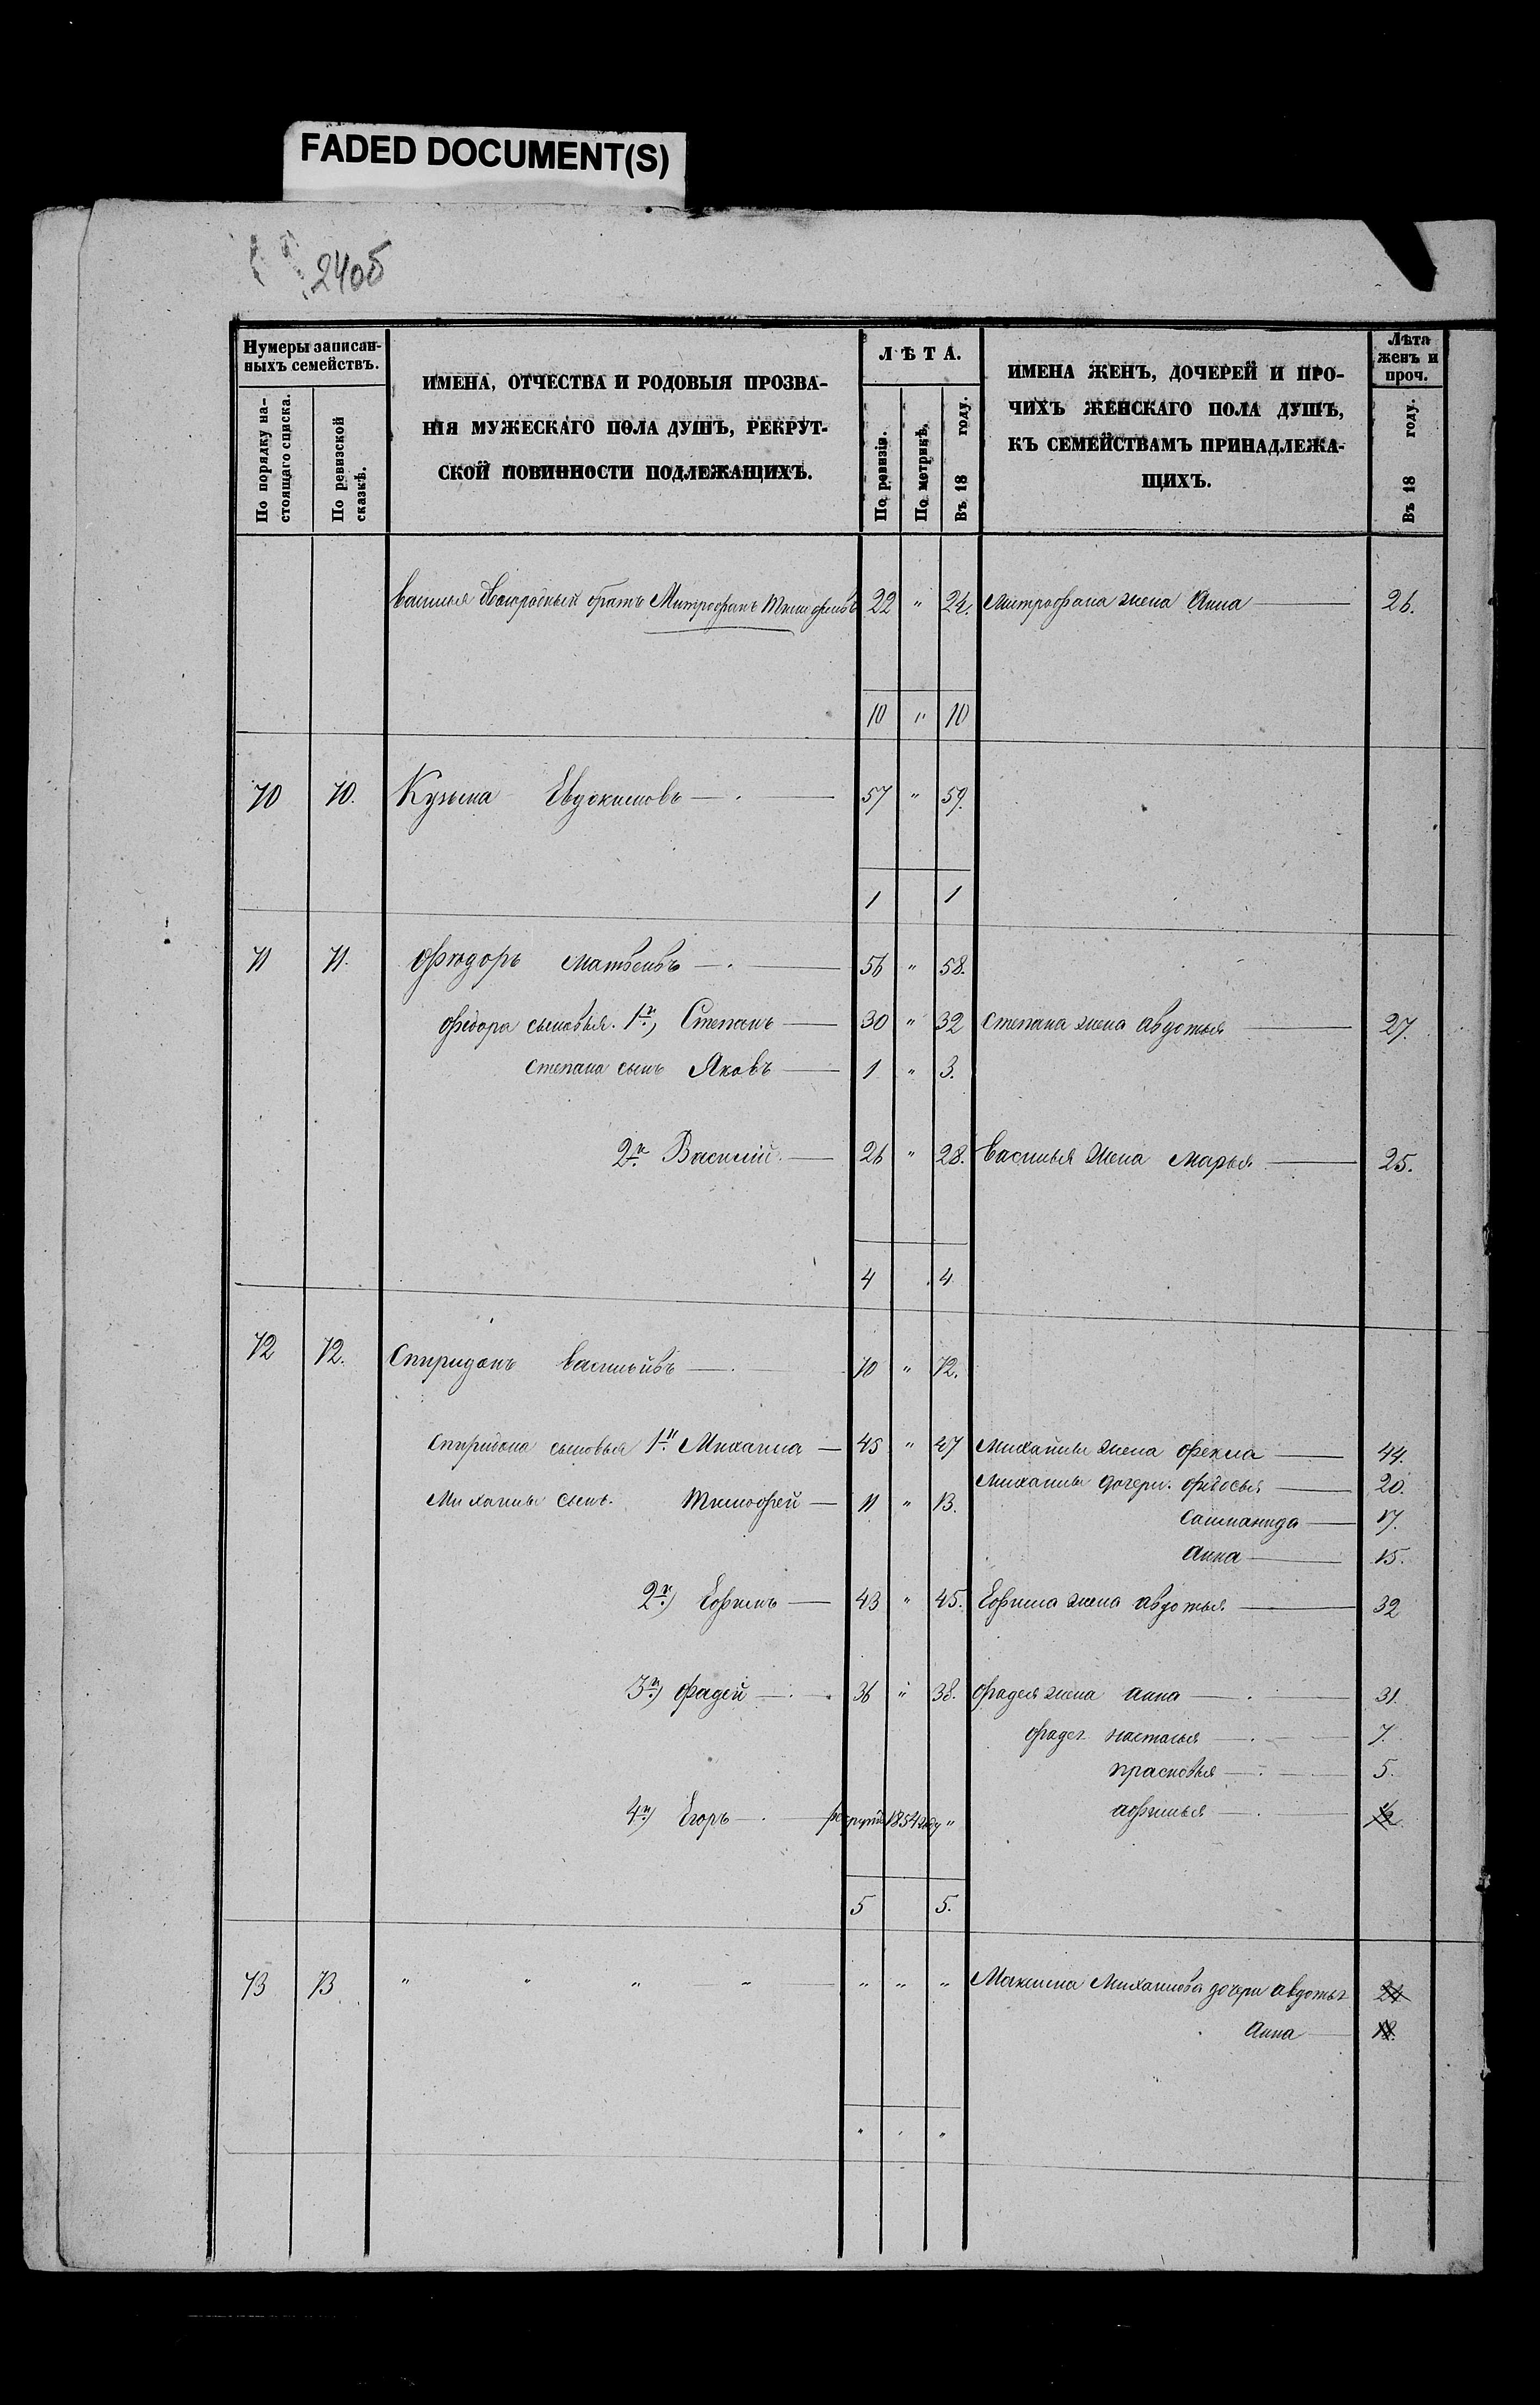 FADED DOCUMENT(S)
2405
Нумеры записан-
ныхъ семействъ.
По порядку на-
стоящаго списка.
По ревизской
сказкѣ.
ИМЕНА, ОТЧЕСТВА И РОДОВЫЯ ПРОЗВА-
НІЯ МУЖЕСКАГО ПОЛА ДУШЪ, РЕКРУТ-
СКОЙ ПОВИННОСТИ ПОДЛЕЖАЩИХЪ.
ЛѢТА.
По ревизіи.
По метрикѣ.
Въ 18 году.
ИМЕНА ЖЕНЪ, ДОЧЕРЕЙ И ПРО-
ЧИХЪ ЖЕНСКАГО ПОЛА ДУШЪ,
КЪ СЕМЕЙСТВАМЪ ПРИНАДЛЕЖА-
ЩИХЪ.
Лѣта
женъ и
проч.
Въ 18 году.
Василья двоюродный братъ Митрофанъ Тимофеевъ 22 " 24. Митрофана жена Анна 26.
10 " 10
70 70. Кузьма Евдокимовъ 57 " 59.
1 1
71 71. Фѣодоръ Матвеевъ 56 " 58.
Фѣдора сыновья. 1й) Степанъ 30 " 32 Степана жена Авдотья 27.
Степана сынъ Яковъ 1 " 3.
2й Василій 26 " 28. Василья жена Марья 25.
4 4
72 72. Спиридонъ Васильевъ 70 " 72.
Спиридона сыновья 1й Михаила 45 " 47 Михайлы жена Фекла 44.
Михаилы дочери. Федосья 20.
Михаилы сынъ. Тимофей 11 " 13.
Саломанида 17.
Анна 15.
2й) Ефимъ 43 " 45. Ефима жена Авдотья 32
3й) Фадей 36 " 38. Фадея жена Анна 31.
Фадея Настасья 7.
Прасковья 5.
4й) Егоръ рекрутъ 1854 году "
Афимья 1/2
5 5.
73 73 " " " " " " " Максима Михаилова дочери Авдотья 24
Анна 18.
" " "